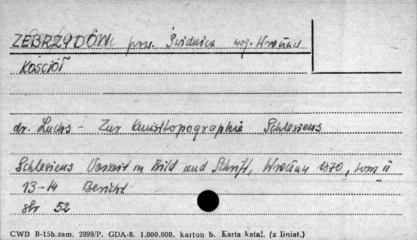 ZEBRZYDÓW pow. Świdnica woj. Wrocław
KOŚCIÓŁ
dr. Luchs - Zur Kunsttopographie Schlesiens
Schlesiens Vorzeit in Bild und Schrift, Wrocław 1870, tom II
13-14 Bericht
str 52
CWD B-15b.zam. 2899/P. GDA-8. 1.000.000. karton b. Karta katal. (z liniat.)